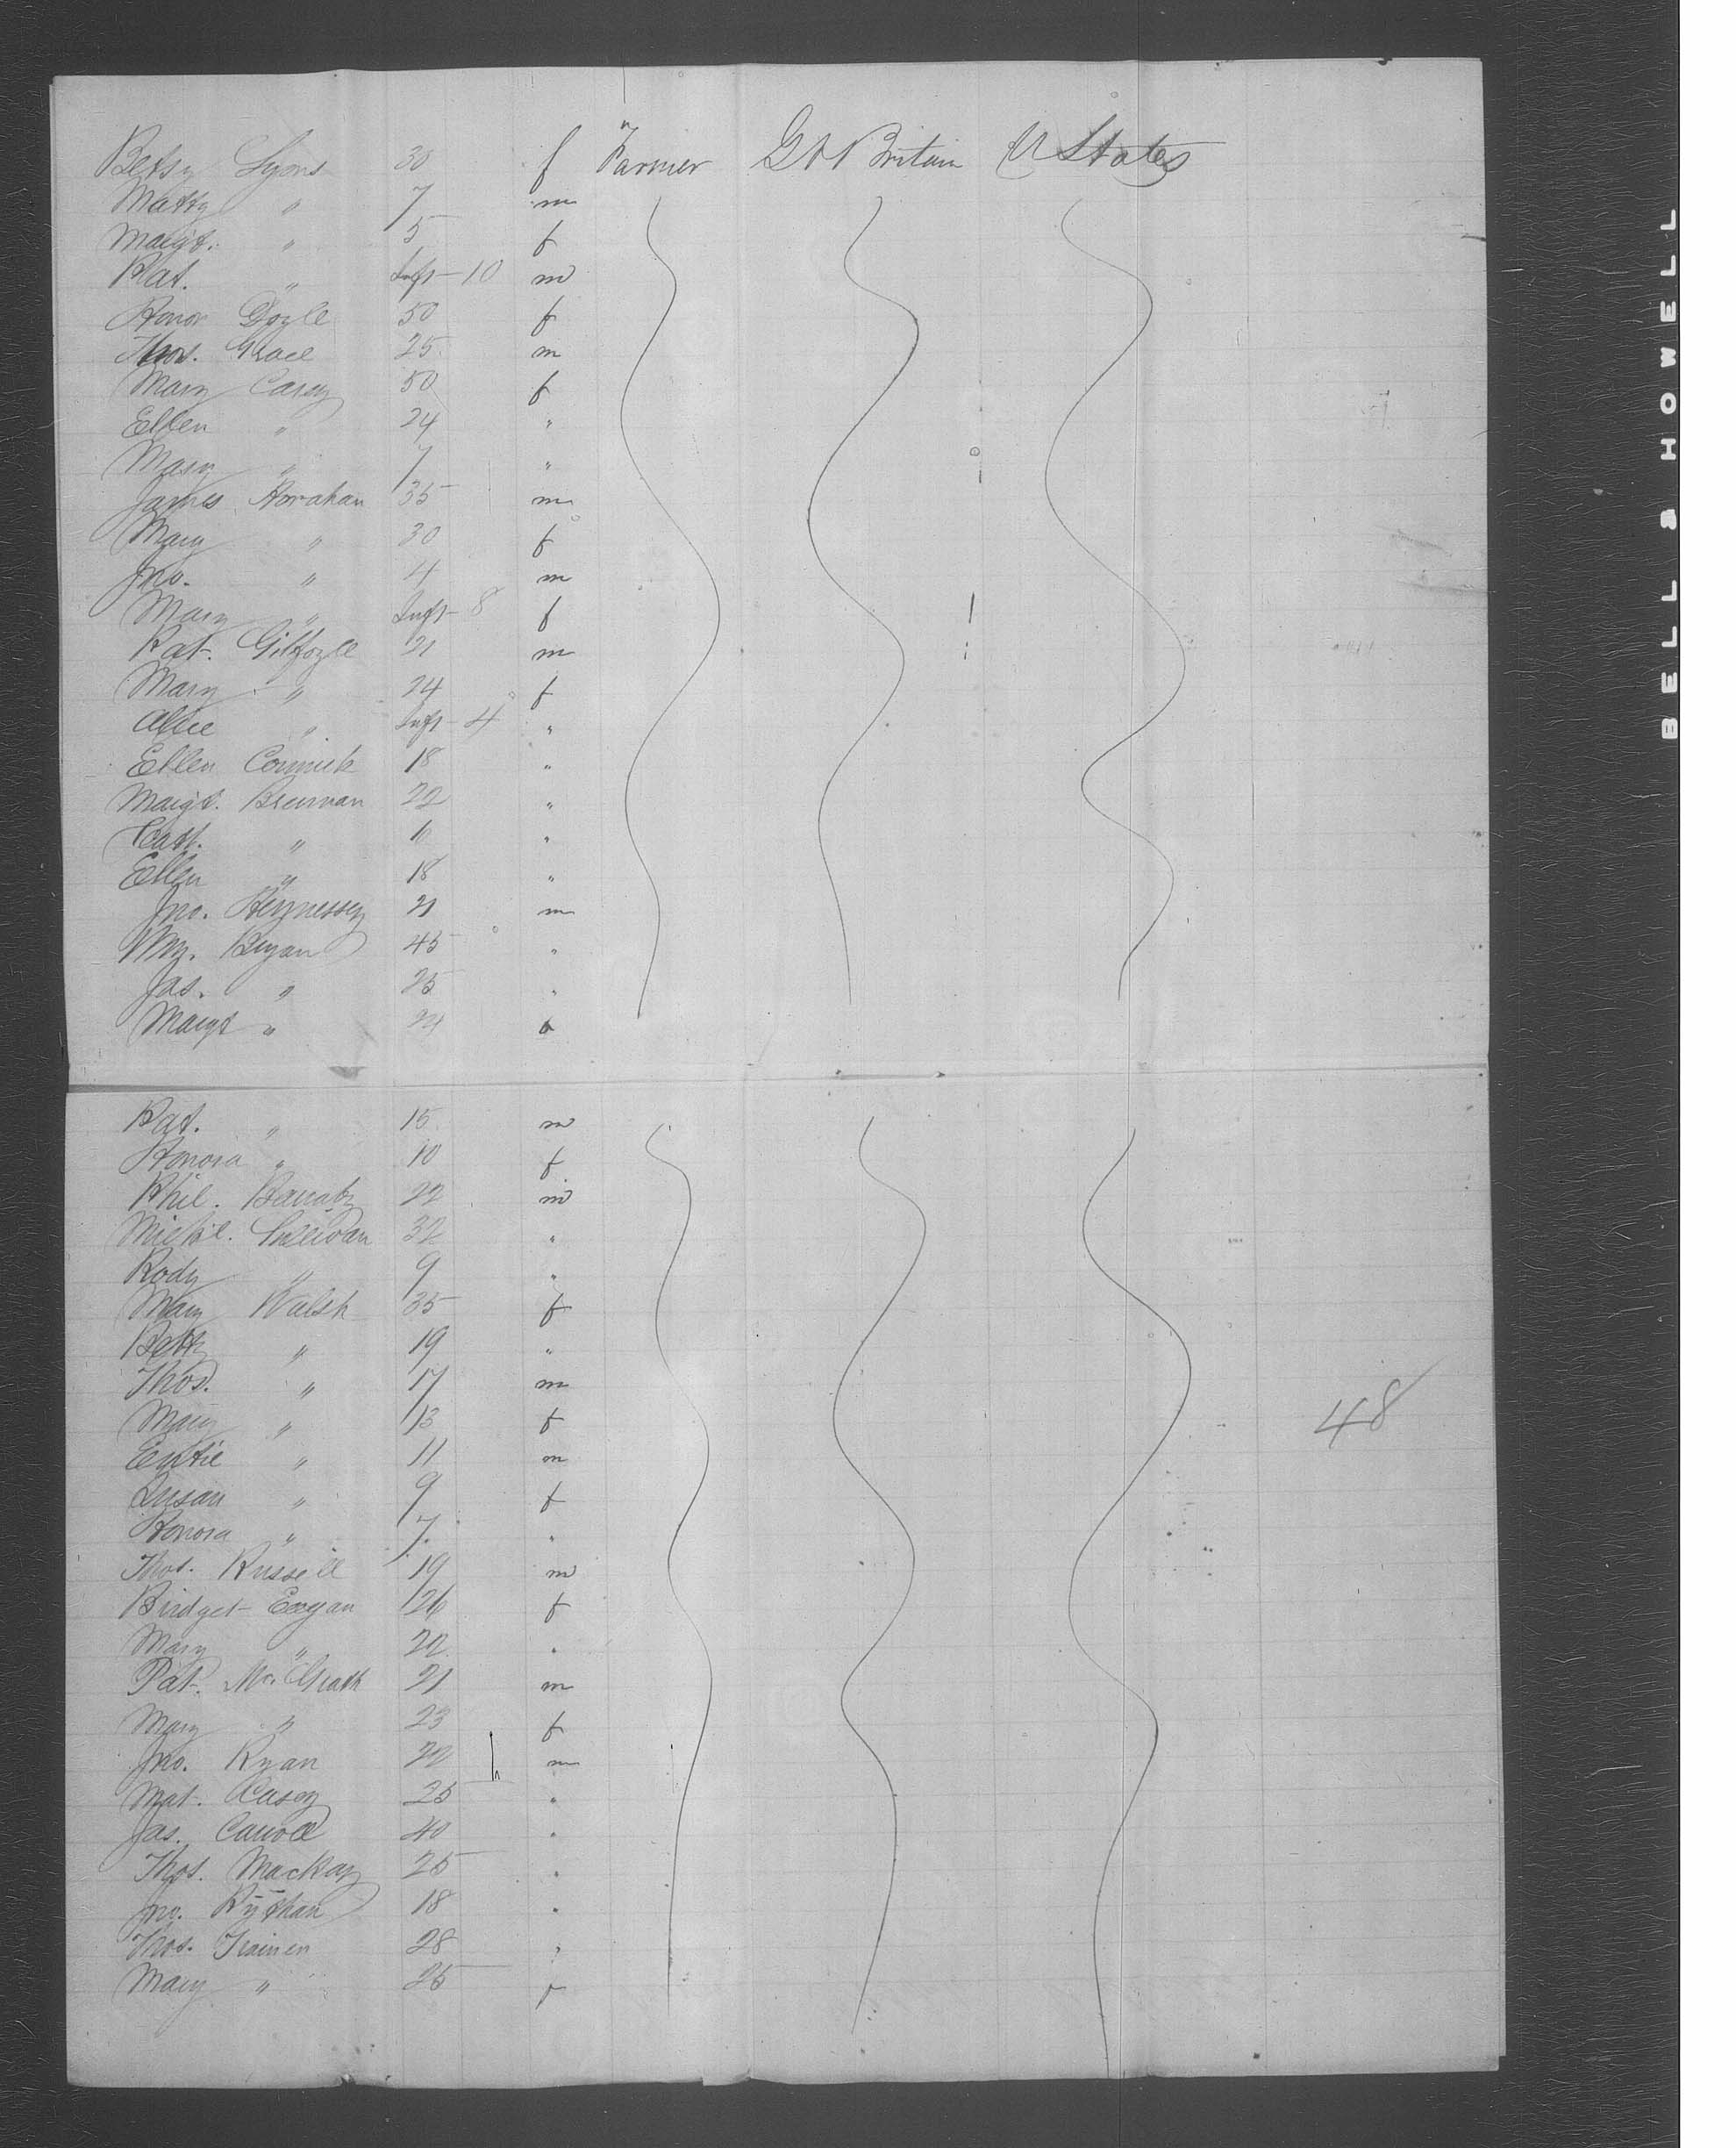 Betsy Lyons 30 f Farmer Gt Britain U States
Matty " 7 m
Margt. " 5 f
Pat. " Inft-10 m
Honor Doyle 50 f
Thos. Grace 25 m
Mary Casey 50 f
Ellen " 24 "
Mary " 7 "
James Horahan 35 m
Mary " 30 f
Jno. " 4 m
Mary " Inft-8 f
Pat. Gilfoyle 21 m
Mary " 24 f
Alice " Inft-4 "
Ellen Cormick 18 "
Margt. Brennan 22 "
Cath. " "
Ellen " 18 "
Jno. Hennessey 21 m
Wm. Bryan 45 "
Jas. " 25 "
Margt " 24 f
Pat. " 15 m
Honora " 10 f
Phil. 22 m
Michl. Sullivan 32 "
Rody " 9 "
Mary Walsh 35 f
Betty " 19 "
Thos. " 17 m
Mary " 13 f
" 11 m
Susan " 9 f
Honora " 7 "
Thos. Russell 19 m
Bridget Eagan 26 f
Mary " 22 "
Pat. Mc.Grath 21 m
Mary " 23 f
Jno. Ryan 22 m
Mat. Casey 25 "
Jas. Carroll 40 "
Thos. Mackay 25 "
Jno. 18 "
Thos. Trainer 28 "
Mary " 25 f
48
BELL & HOWELL